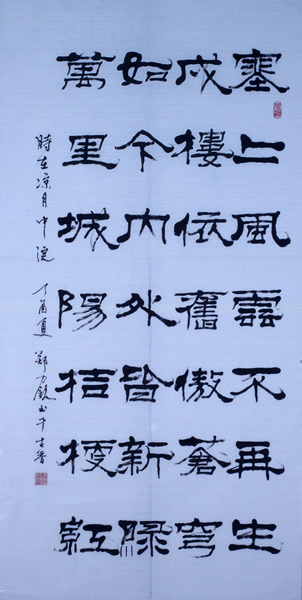 塞上風雲不再生
戍樓依舊傲蒼穹
如今內外皆新綠
萬里城陽桔梗紅
時在凉月中浣 丁酉夏 鄭力